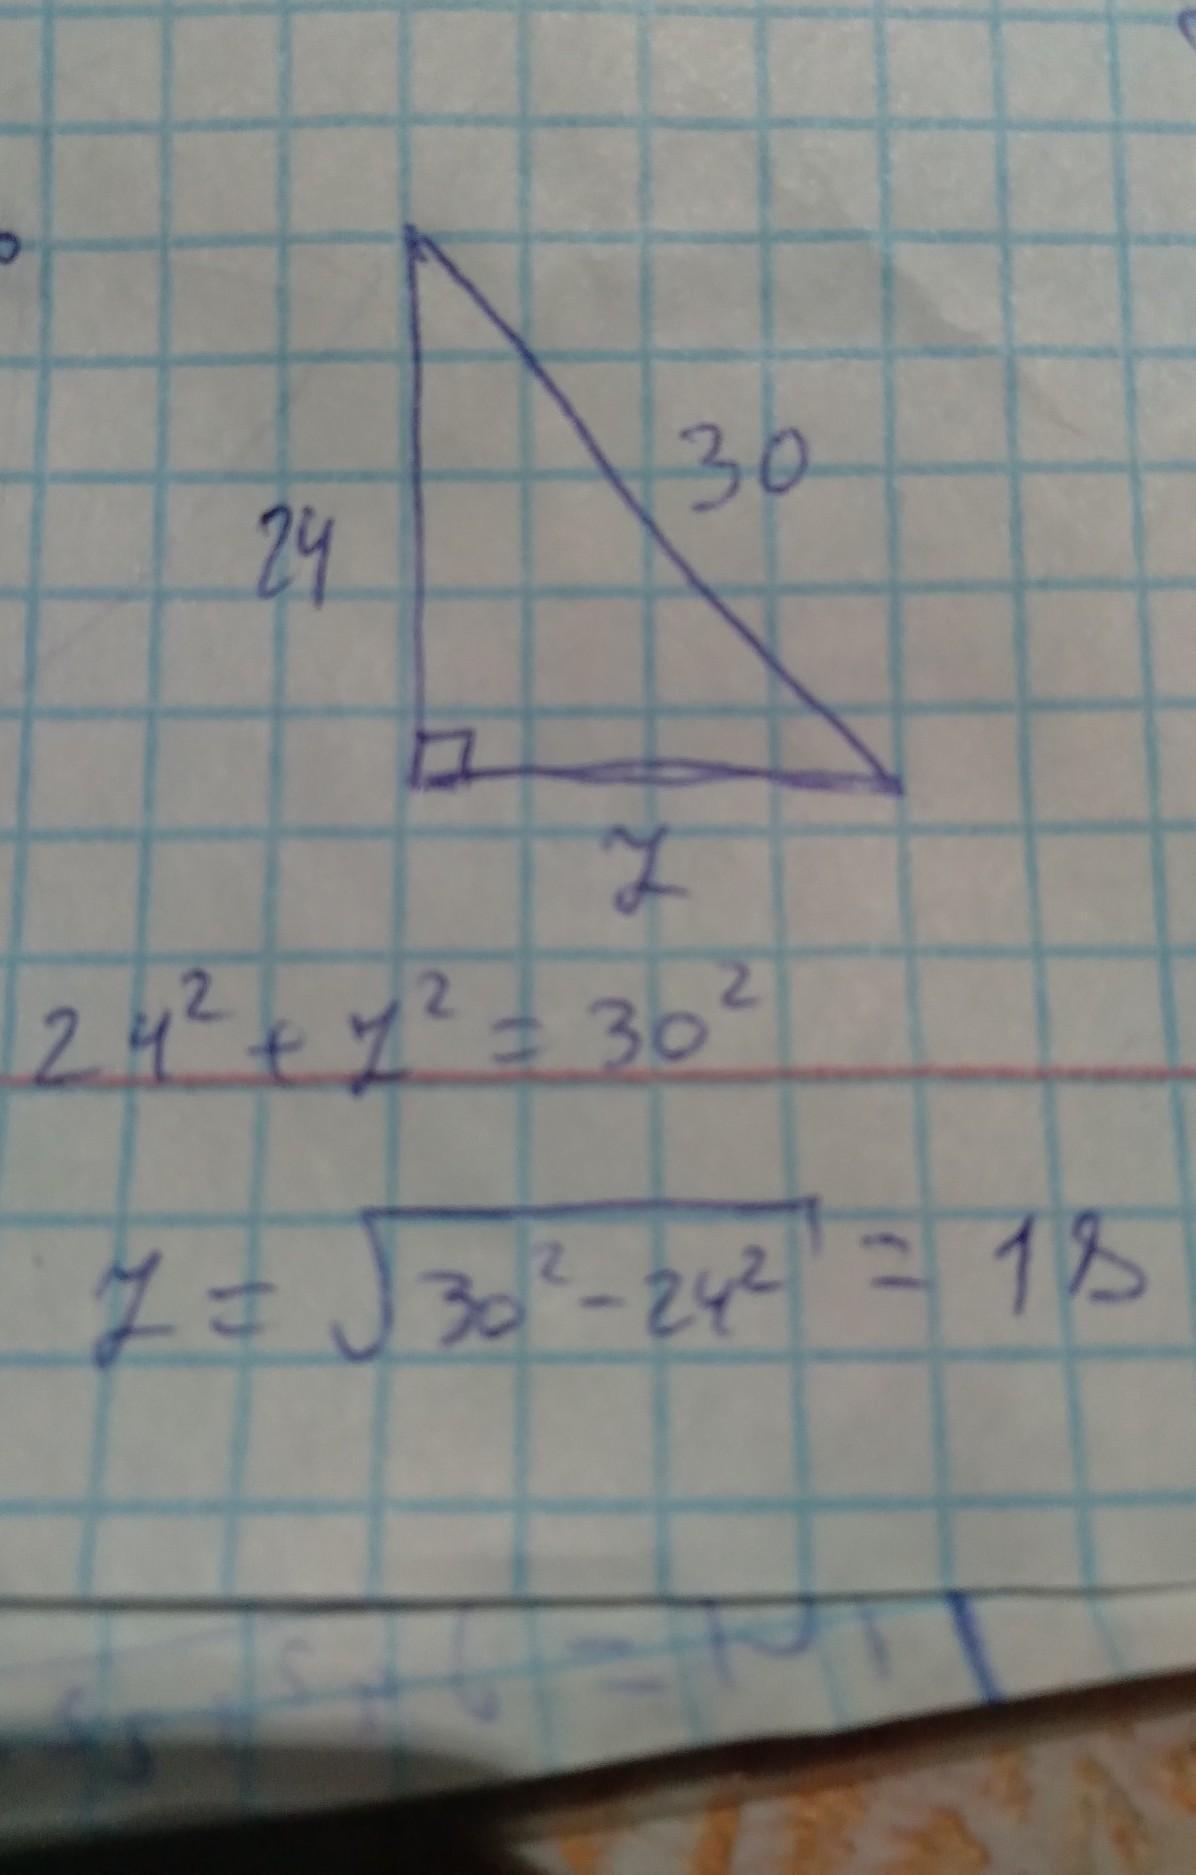 24
30
z
24² + z² = 30²
z = √30² - 24² = 18